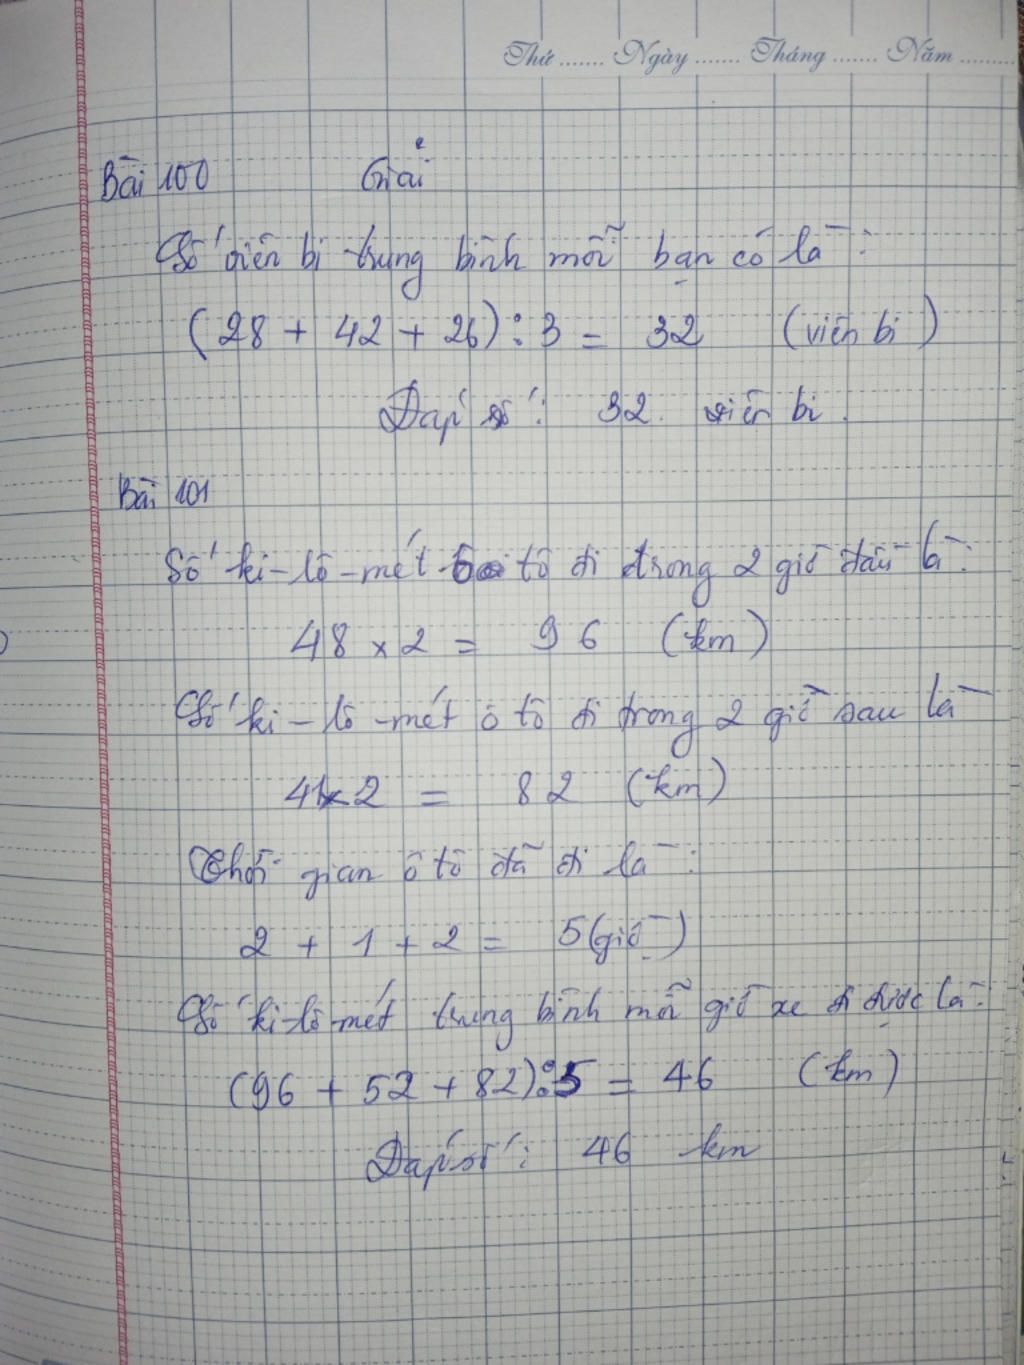 Thứ ....... Ngày ....... Tháng ....... Năm .........
Bài 100 Giải
Số viên bi trung bình mỗi bạn có là :
(28 + 42 + 26) : 3 = 32 (viên bi)
Đáp số : 32 viên bi .
Bài 101
Số ki-lô-mét ô tô đi trong 2 giờ đầu là :
48 x 2 = 96 (km)
Số ki-lô-mét ô tô đi trong 2 giờ sau là
41x2 = 82 (km)
Thời gian ô tô đã đi là :
2 + 1 + 2 = 5(giờ)
Số ki-lô-mét trung bình mỗi giờ xe đi được là :
(96 + 52 + 82):5 = 46 (km)
Đáp số : 46 km